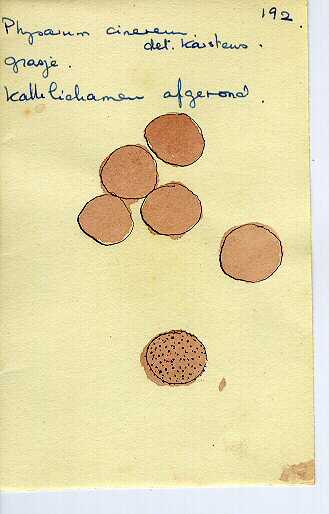 192.
Physarum cinereum
det. Karstens.
grasje.
Kalklichamen afgerond.